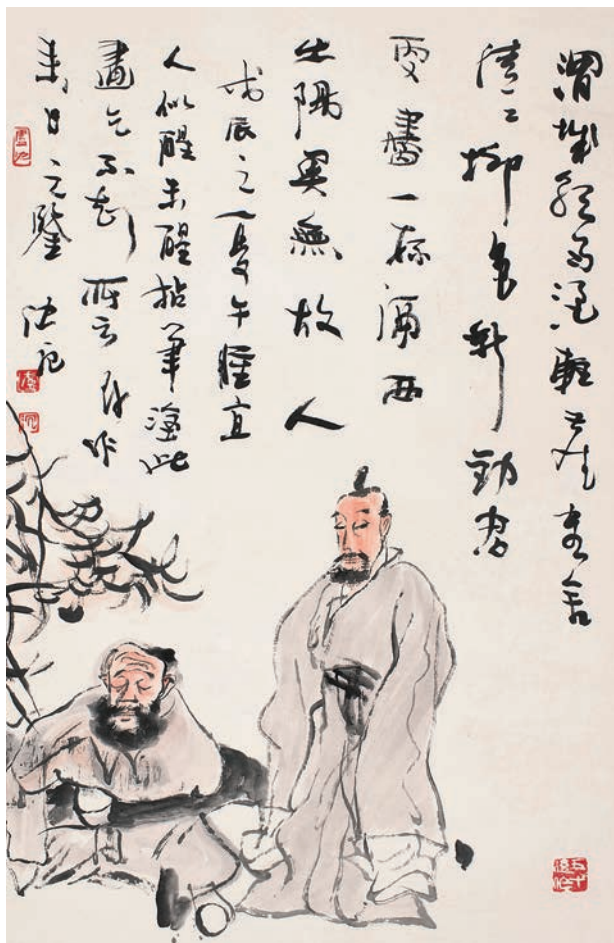 渭城朝雨浥輕塵客舍
清〻柳色新勸君
更盡一杯酒西
出陽関無故人
戊辰之夏午睡
人似醒未醒拈筆塗此
畫不知所云存作
來日之鑒